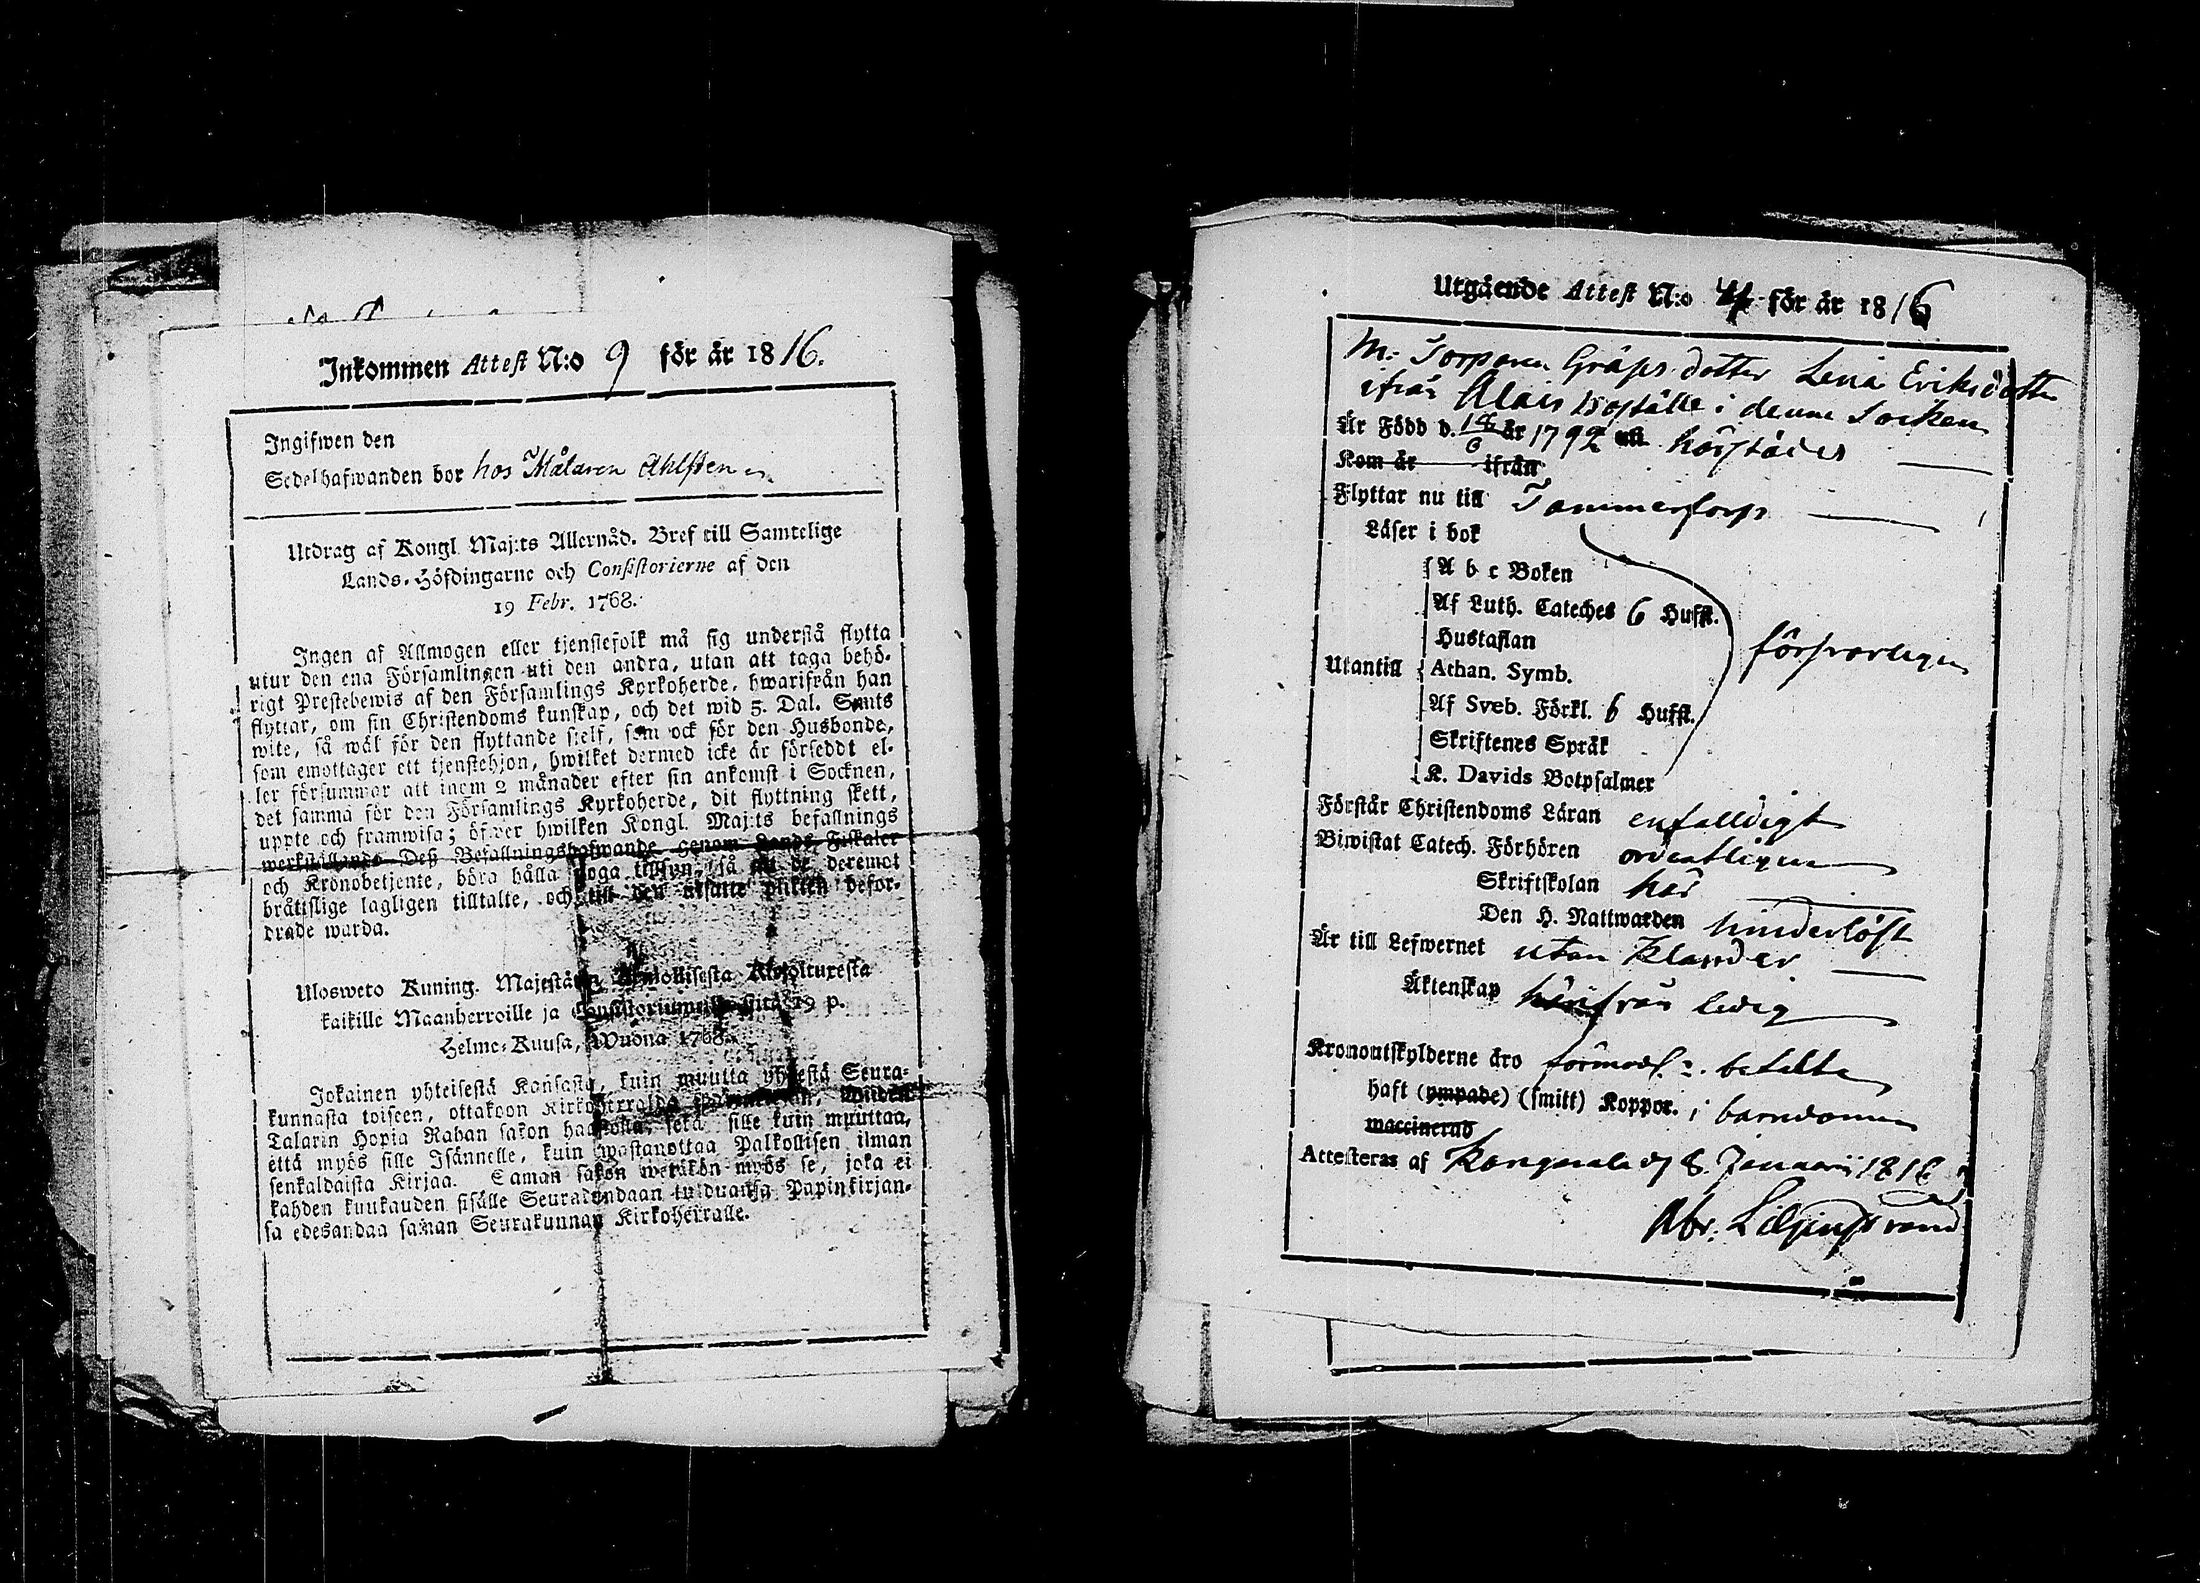 Inkommen Attest N:o 9 för år 1816.
Ingifwen den
Sedelhafwanden bor hos Målaren Ahlsten
Utdrag af Kongl. Maj:ts Allernåd. Bref till Samtelige
Lands-Höfdingarne och Consistorierne af den
19 Febr. 1768.
Ingen af Allmogen eller tjenstefolk må sig understå flytta
utur den ena Församlingen uti den andra, utan att taga behö-
rigt Prestebewis af den Församlings Kyrkoherde, hwarifrån han
flyttar, om sin Christendoms kunskap, och det wid 5. Dal. Smts
wite, så wäl för den flyttande sielf, som ock för den Husbonde,
som emottager ett tjenstehjon, hwilket dermed icke är förseddt el-
ler försummar att inom 2 månader efter sin ankomst i Socknen,
det samma för den Församlings Kyrkoherde, dit flyttning skett,
uppte och framwisa; öfwer hwilken Kongl. Maj:ts befallnings
werkställande Deß Befallningshafwande genom Lands Fiskaler
och Kronobetjente, böra hålla noga tillsyn, så att de deremot
bråttslige lagligen tilltalte, och till den utsatte plikten befor-
drade warda.
Ulosweto Kuning. Majestätin Armollisesta Käskyituxesta
kaikille Maanherroille ja Consistoriumeille siitä 19 p.
Helme-Kuusa, Wuona 1768.
Jokainen yhteisestä Kansasta, kuin muutta yhdestä Seura-
kunnasta toiseen, ottakoon Kirkoherralda
Talarin Hopia Rahan sakon haastolla, sekä sille kuin muuttaa,
että myös sille Isännelle, kuin wastanottaa Palkollisen ilman
senkaldaista Kirjaa. Saman sakon wetäkön myös se, joka ei
kahden kuukauden sisälle Seurakundaan tulduansa Papinkirjan-
sa edesandaa saman Seurakunnan Kirkoherralle.
Utgående Attest N:o 4 för år 1816
M: Torparen Gräps dotter Lena Eriksdotter
ifrån Alais Boställe i denne Socken
Är Född d. 18/6 år 1792 uti härstädes
Kom år ifrån
Flyttar nu till Tammerfors
Läser i bok
A b c Boken
Af Luth. Cateches 6 Hufst.
Hustaflan
försvarligen
Utantill Athan. Symb.
Af Sveb. Förkl. 6 Hufst.
Skriftenes Språk
K. Davids Botpsalmer
Förstår Christendoms Läran enfalldigt
Biwistat Catech. Förhören ordentligen
Skriftskolan här
Den H. Nattwarden hinderlöst
Är till Lefwernet utan Klander
Äktenskap härifrån ledig
Kronoutskylderne äro förmodl:n betalta
haft (ympade) (smitt) Koppor. i barndomen
waccinerad
Attesteras af Kangasala d 8 Januarii 1816
Abr. Liljenstrand